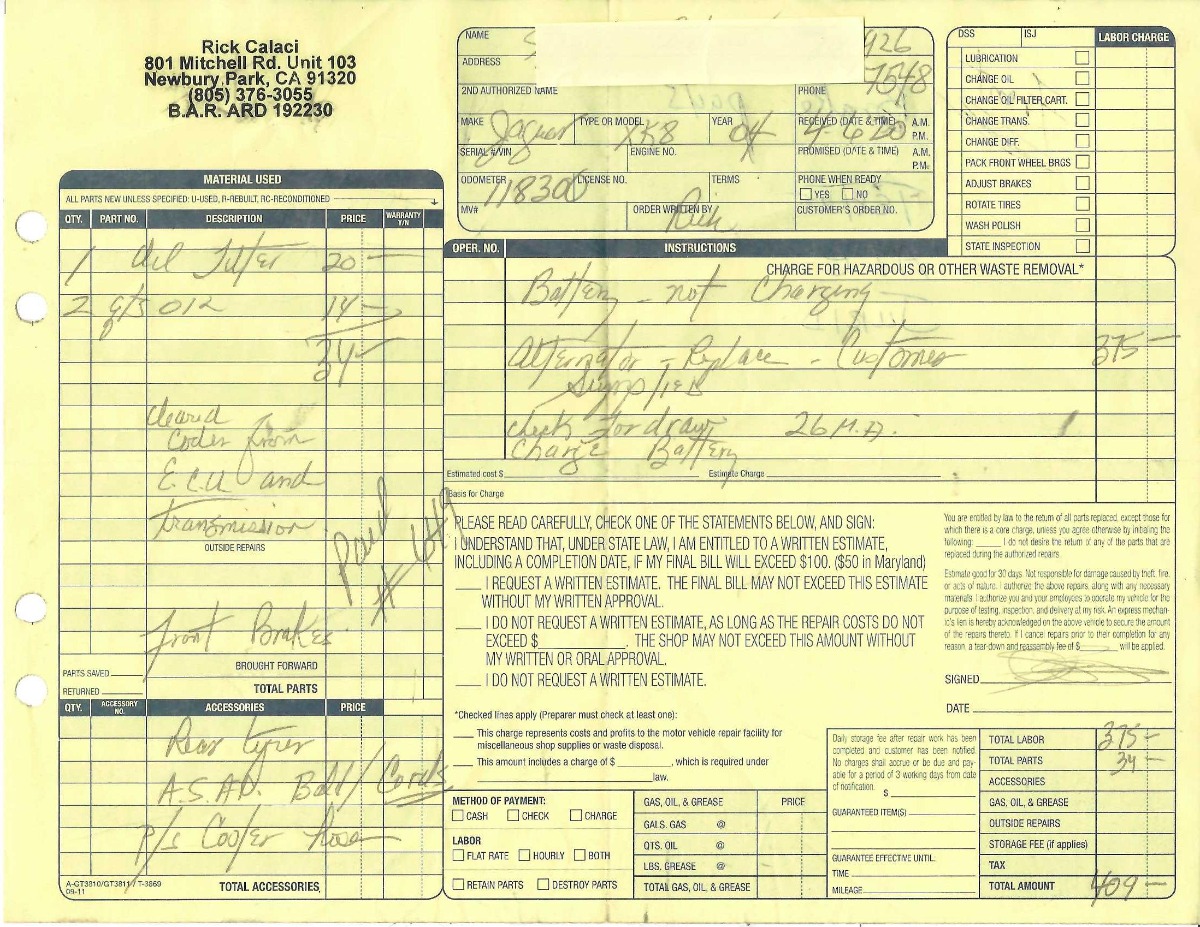 Rick Calaci
801 Mitchell Rd. Unit 103
Newbury Park, CA 91320
(805) 376-3055
B.A.R. ARD 192230
NAME 926
ADDRESS 7548
2ND AUTHORIZED NAME PHONE
MAKE Jaguar TYPE OR MODEL XK8 YEAR 04 RECEIVED (DATE & TIME) 4-6-20 A.M. P.M.
SERIAL #/VIN ENGINE NO. PROMISED (DATE & TIME) A.M. P.M.
ODOMETER 118300 LICENSE NO. TERMS PHONE WHEN READY
YES NO
MV# ORDER WRITTEN BY Rick CUSTOMER'S ORDER NO.
DSS ISJ LABOR CHARGE
LUBRICATION
CHANGE OIL
CHANGE OIL FILTER CART.
CHANGE TRANS.
CHANGE DIFF.
PACK FRONT WHEEL BRGS
ADJUST BRAKES
ROTATE TIRES
WASH POLISH
STATE INSPECTION
MATERIAL USED
ALL PARTS NEW UNLESS SPECIFIED: U-USED, R-REBUILT, RC-RECONDITIONED
QTY. PART NO. DESCRIPTION PRICE WARRANTY T/N
1 Oil Filter 20 —
2 qts OIL 14 —
34 —
Cleared
Codes from
E.C.U and
Transmission
OUTSIDE REPAIRS
Paid
# 6449
front Brakes
BROUGHT FORWARD
PARTS SAVED
TOTAL PARTS
RETURNED
QTY. ACCESSORY NO. ACCESSORIES PRICE
Rear tyres
A.S.A.P. Bald / Cords
P/s Cooler hose
A-GT3810/GT3811 / T-3869
09-11
TOTAL ACCESSORIES
OPER. NO. INSTRUCTIONS
CHARGE FOR HAZARDOUS OR OTHER WASTE REMOVAL*
Battery - not Charging
Alternator - Replace - Customer 375 —
Supplied
Check for draw 26 M.A.
Charge Battery
Estimated cost $ Estimate Charge
Basis for Charge
PLEASE READ CAREFULLY, CHECK ONE OF THE STATEMENTS BELOW, AND SIGN:
I UNDERSTAND THAT, UNDER STATE LAW, I AM ENTITLED TO A WRITTEN ESTIMATE,
INCLUDING A COMPLETION DATE, IF MY FINAL BILL WILL EXCEED $100. ($50 in Maryland)
I REQUEST A WRITTEN ESTIMATE. THE FINAL BILL MAY NOT EXCEED THIS ESTIMATE
WITHOUT MY WRITTEN APPROVAL.
I DO NOT REQUEST A WRITTEN ESTIMATE, AS LONG AS THE REPAIR COSTS DO NOT
EXCEED $ . THE SHOP MAY NOT EXCEED THIS AMOUNT WITHOUT
MY WRITTEN OR ORAL APPROVAL.
I DO NOT REQUEST A WRITTEN ESTIMATE.
*Checked lines apply (Preparer must check at least one):
This charge represents costs and profits to the motor vehicle repair facility for
miscellaneous shop supplies or waste disposal.
This amount includes a charge of $ , which is required under
law.
You are entitled by law to the return of all parts replaced, except those for
which there is a core charge, unless you agree otherwise by initialing the
following: I do not desire the return of any of the parts that are
replaced during the authorized repairs.
Estimate good for 30 days. Not responsible for damage caused by theft, fire,
or acts of nature. I authorize the above repairs, along with any necessary
materials. I authorize you and your employees to operate my vehicle for the
purpose of testing, inspection, and delivery at my risk. An express mechan-
ic's lien is hereby acknowledged on the above vehicle to secure the amount
of the repairs thereto. If I cancel repairs prior to their completion for any
reason, a tear-down and reassembly fee of $ will be applied.
SIGNED
DATE
METHOD OF PAYMENT:
CASH CHECK CHARGE
LABOR
FLAT RATE HOURLY BOTH
RETAIN PARTS DESTROY PARTS
GAS, OIL, & GREASE PRICE
GALS. GAS @
QTS. OIL @
LBS. GREASE @
TOTAL GAS, OIL, & GREASE
Daily storage fee after repair work has been
completed and customer has been notified.
No charges shall accrue or be due and pay-
able for a period of 3 working days from date
of notification. $
GUARANTEED ITEM(S)
GUARANTEE EFFECTIVE UNTIL:
TIME
MILEAGE
TOTAL LABOR 375 —
TOTAL PARTS 34 —
ACCESSORIES
GAS, OIL, & GREASE
OUTSIDE REPAIRS
STORAGE FEE (if applies)
TAX
TOTAL AMOUNT 409 —